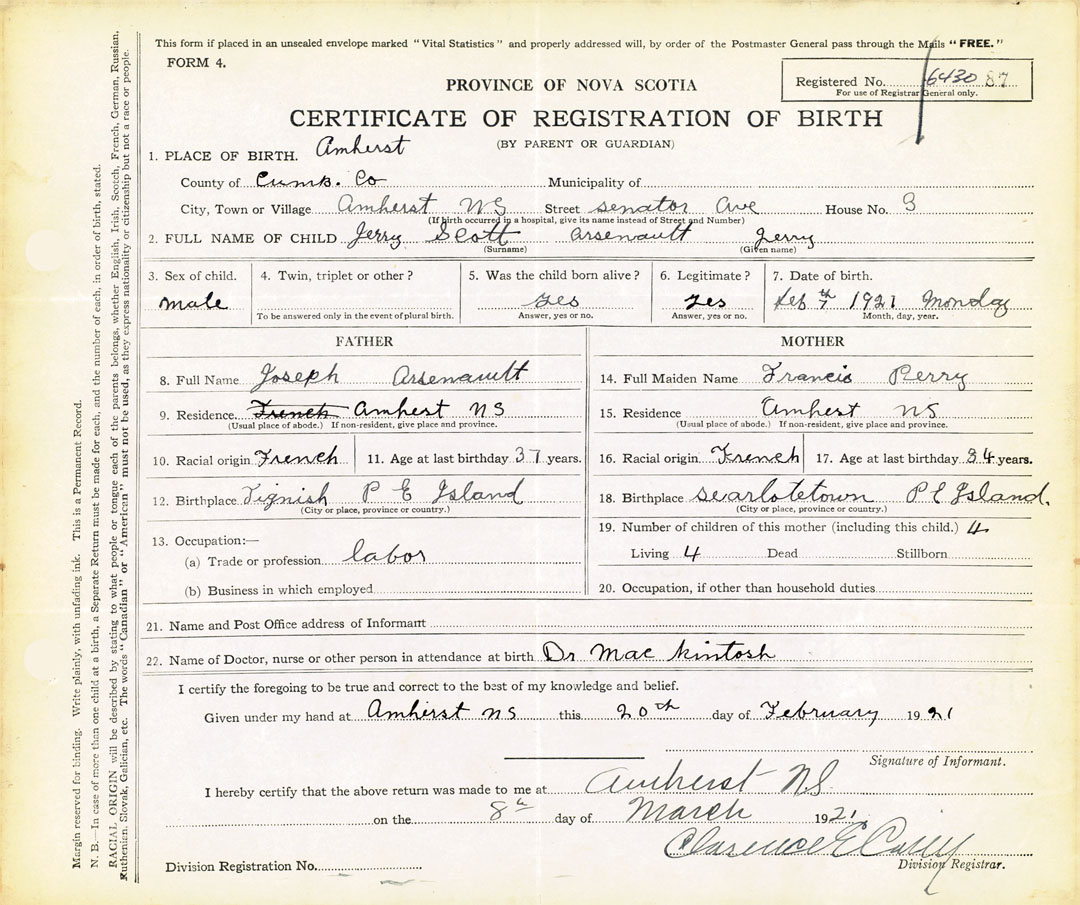 This form if placed in an unsealed envelope marked "Vital Statistics" and properly addressed will, by order of the Postmaster General pass through the Mails "FREE."
FORM 4.
Registered No. 6430 87
For use of Registrar General only.
PROVINCE OF NOVA SCOTIA
CERTIFICATE OF REGISTRATION OF BIRTH
(BY PARENT OR GUARDIAN)
1. PLACE OF BIRTH. Amherst
County of Cumb. Co Municipality of
City, Town or Village Amherst NS Street senator Ave House No. 3
(If birth occurred in a hospital, give its name instead of Street and Number)
2. FULL NAME OF CHILD Jerry Scott Arsenault Jerry
(Surname) (Given name)
3. Sex of child. 4. Twin, triplet or other? 5. Was the child born alive? 6. Legitimate? 7. Date of birth.
male yes yes Feb 7th 1921 Monday
To be answered only in the event of plural birth. Answer, yes or no. Answer, yes or no. Month, day, year.
FATHER MOTHER
8. Full Name Joseph Arsenault 14. Full Maiden Name Francis Perry
9. Residence. French Amhest NS 15. Residence Amhest NS
(Usual place of abode.) If non-resident, give place and province. (Usual place of abode.) If non-resident, give place and province.
10. Racial origin French 11. Age at last birthday 37 years. 16. Racial origin French 17. Age at last birthday 34 years.
12. Birthplace Tignish P E Island 18. Birthplace searlotetown P E Island.
(City or place, province or country.) (City or place, province or country.)
13. Occupation:— 19. Number of children of this mother (including this child.) 4
(a) Trade or profession labor Living 4 Dead Stillborn
(b) Business in which employed 20. Occupation, if other than household duties
21. Name and Post Office address of Informant
22. Name of Doctor, nurse or other person in attendance at birth Dr Mac Kintosh
I certify the foregoing to be true and correct to the best of my knowledge and belief.
Given under my hand at Amherst NS this 20th day of February 1921
Signature of Informant.
I hereby certify that the above return was made to me at Amherst N.S.
on the 8th day of March 1921.
Clarence E Casey
Division Registration No. Division Registrar.
Margin reserved for binding. Write plainly, with unfading ink. This is a Permanent Record.
N. B.—In case of more than one child at a birth, a Separate Return must be made for each, and the number of each, in order of birth, stated.
RACIAL ORIGIN will be described by stating to what people or tongue each of the parents belongs, whether English, Irish, Scotch, French, German, Russian,
Ruthenian, Slovak, Galician, etc. The words "Canadian" or "American" must not be used, as they express nationality or citizenship but not a race or people.